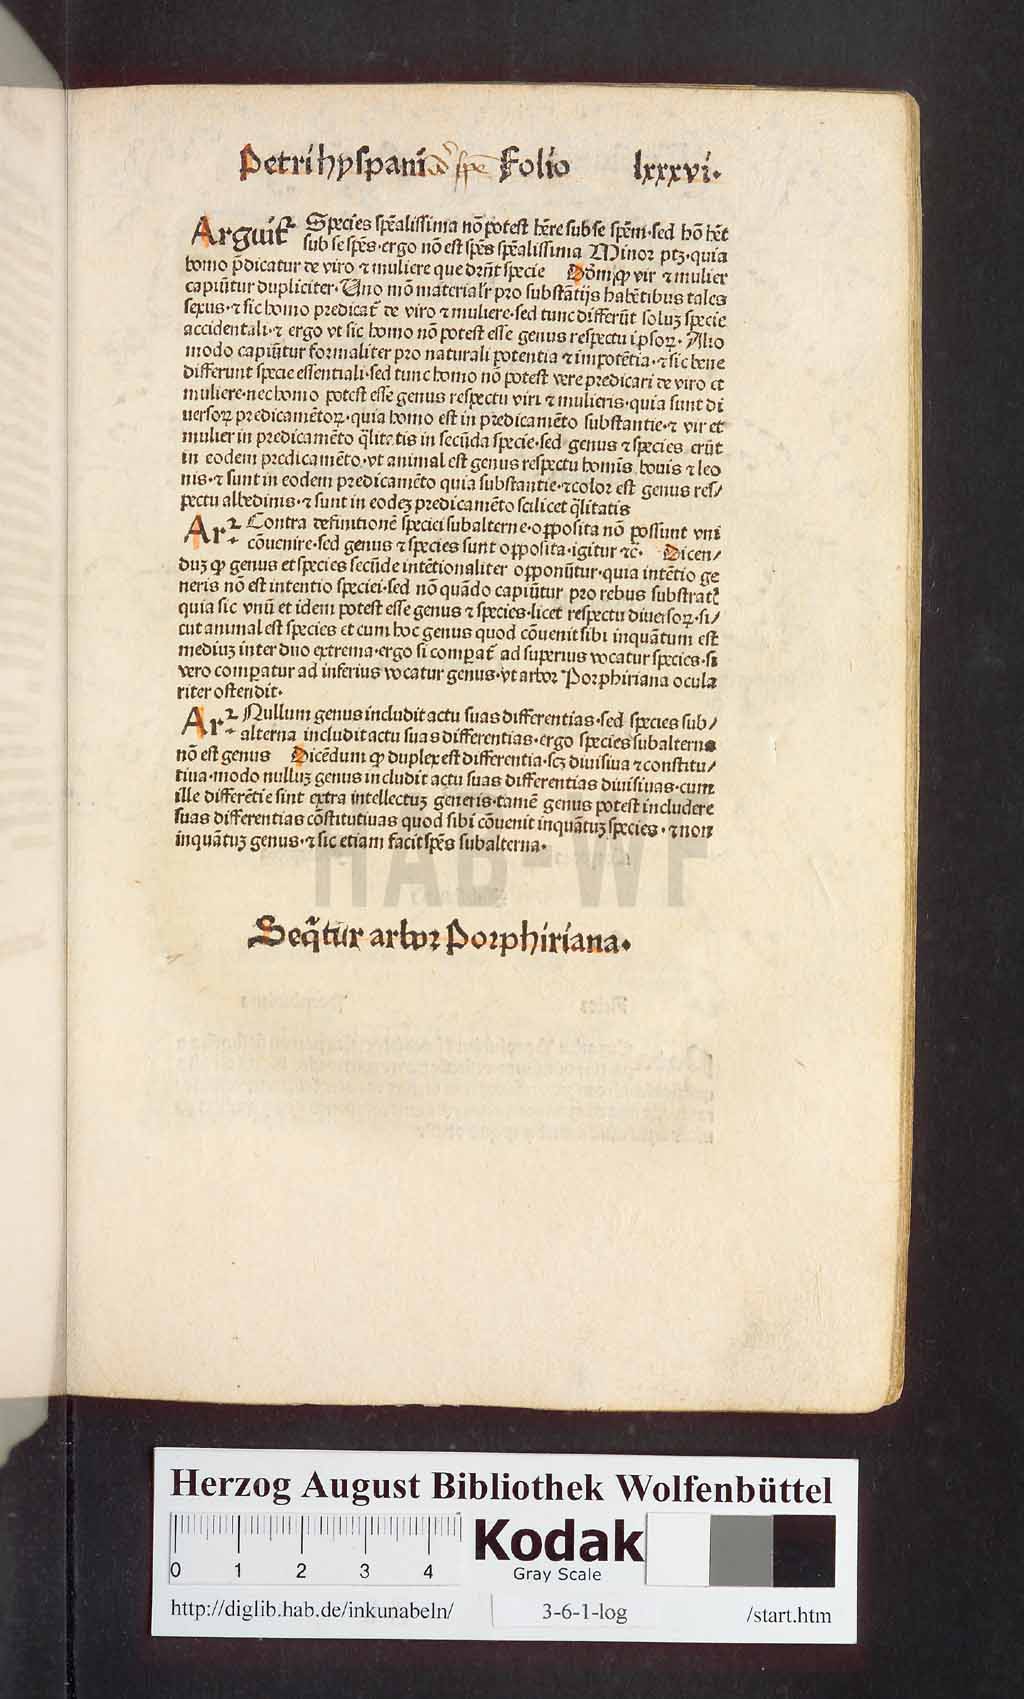 Petri hyspani de spe Folio lxxxvi.
Arguit᷑ Species spālissima nō potest hr̄e sub se spēm. sed hō hēt
sub se spēs. ergo nō est spēs spālissima Minor ptꝫ. quia
homo p̄dicatur de viro ⁊ muliere que drn̄t specie Dōm ꝙ vir ⁊ mulier
capiūtur dupliciter. Uno mō materialr̄ pro substātijs habētibus tales
sexus. ⁊ sic homo predicat᷑ de viro ⁊ muliere. sed tunc differūt soluꝫ specie
accidentali. ⁊ ergo vt sic homo nō potest esse genus respectu ipsoꝝ. Alio
modo capiūtur formaliter pro naturali potentia ⁊ impotētia. ⁊ sic bene
differunt specie essentiali. sed tunc homo nō potest vere predicari de viro et
muliere. nec homo potest esse genus respectu viri ⁊ mulieris. quia sunt di
uersoꝝ predicamētoꝝ. quia homo est in predicamēto substantie. ⁊ vir et
mulier in predicamēto q̄litatis in secūda specie. sed genus ⁊ species erūt
in eodem predicamēto. vt animal est genus respectu homis̄ bouis ⁊ leo
nis. ⁊ sunt in eodem predicamēto quia substantie. ⁊ color est genus res/
pectu albedinis. ⁊ sunt in eodeꝫ predicamēto scilicet q̄litatis
Ar⁊. Contra definitionē speciei subalterne. opposita nō possunt vni
cōuenire. sed genus ⁊ species sunt opposita. igitur ⁊c̄. Dicen/
duꝫ ꝙ genus et species secūde intētionaliter opponūtur. quia intētio ge
neris nō est intentio speciei. sed nō quādo capiūtur pro rebus substratꝭ
quia sic vnū et idem potest esse genus ⁊ species. licet respectu diuersoꝝ. si/
cut animal est species et cum hoc genus quod cōuenit sibi inquātum est
mediuꝫ inter duo extrema. ergo si comꝑat᷑ ad superius vocatur species. si
vero comꝑatur ad inferius vocatur genus. vt arbor Porphiriana ocula
riter ostendit.
Ar⁊. Nullum genus includit actu suas differentias. sed species sub/
alterna includit actu suas differentias. ergo species subalterna
nō est genus Dicēdum ꝙ duplex est differentia. scꝫ diuisiua ⁊ constitu/
tiua. modo nulluꝫ genus includit actu suas differentias diuisiuas. cum
ille differētie sint extra intellectuꝫ generis. tamē genus potest includere
suas differentias cōstitutiuas quod sibi cōuenit inquātuꝫ species. ⁊ non
inquātuꝫ genus. ⁊ sic etiam facit spēs subalterna.
HAB-WF
Seq̄tur arbor Porphiriana.
Herzog August Bibliothek Wolfenbüttel
0 1 2 3 4
Kodak
Gray Scale
http://diglib.hab.de/inkunabeln/ 3-6-1-log /start.htm